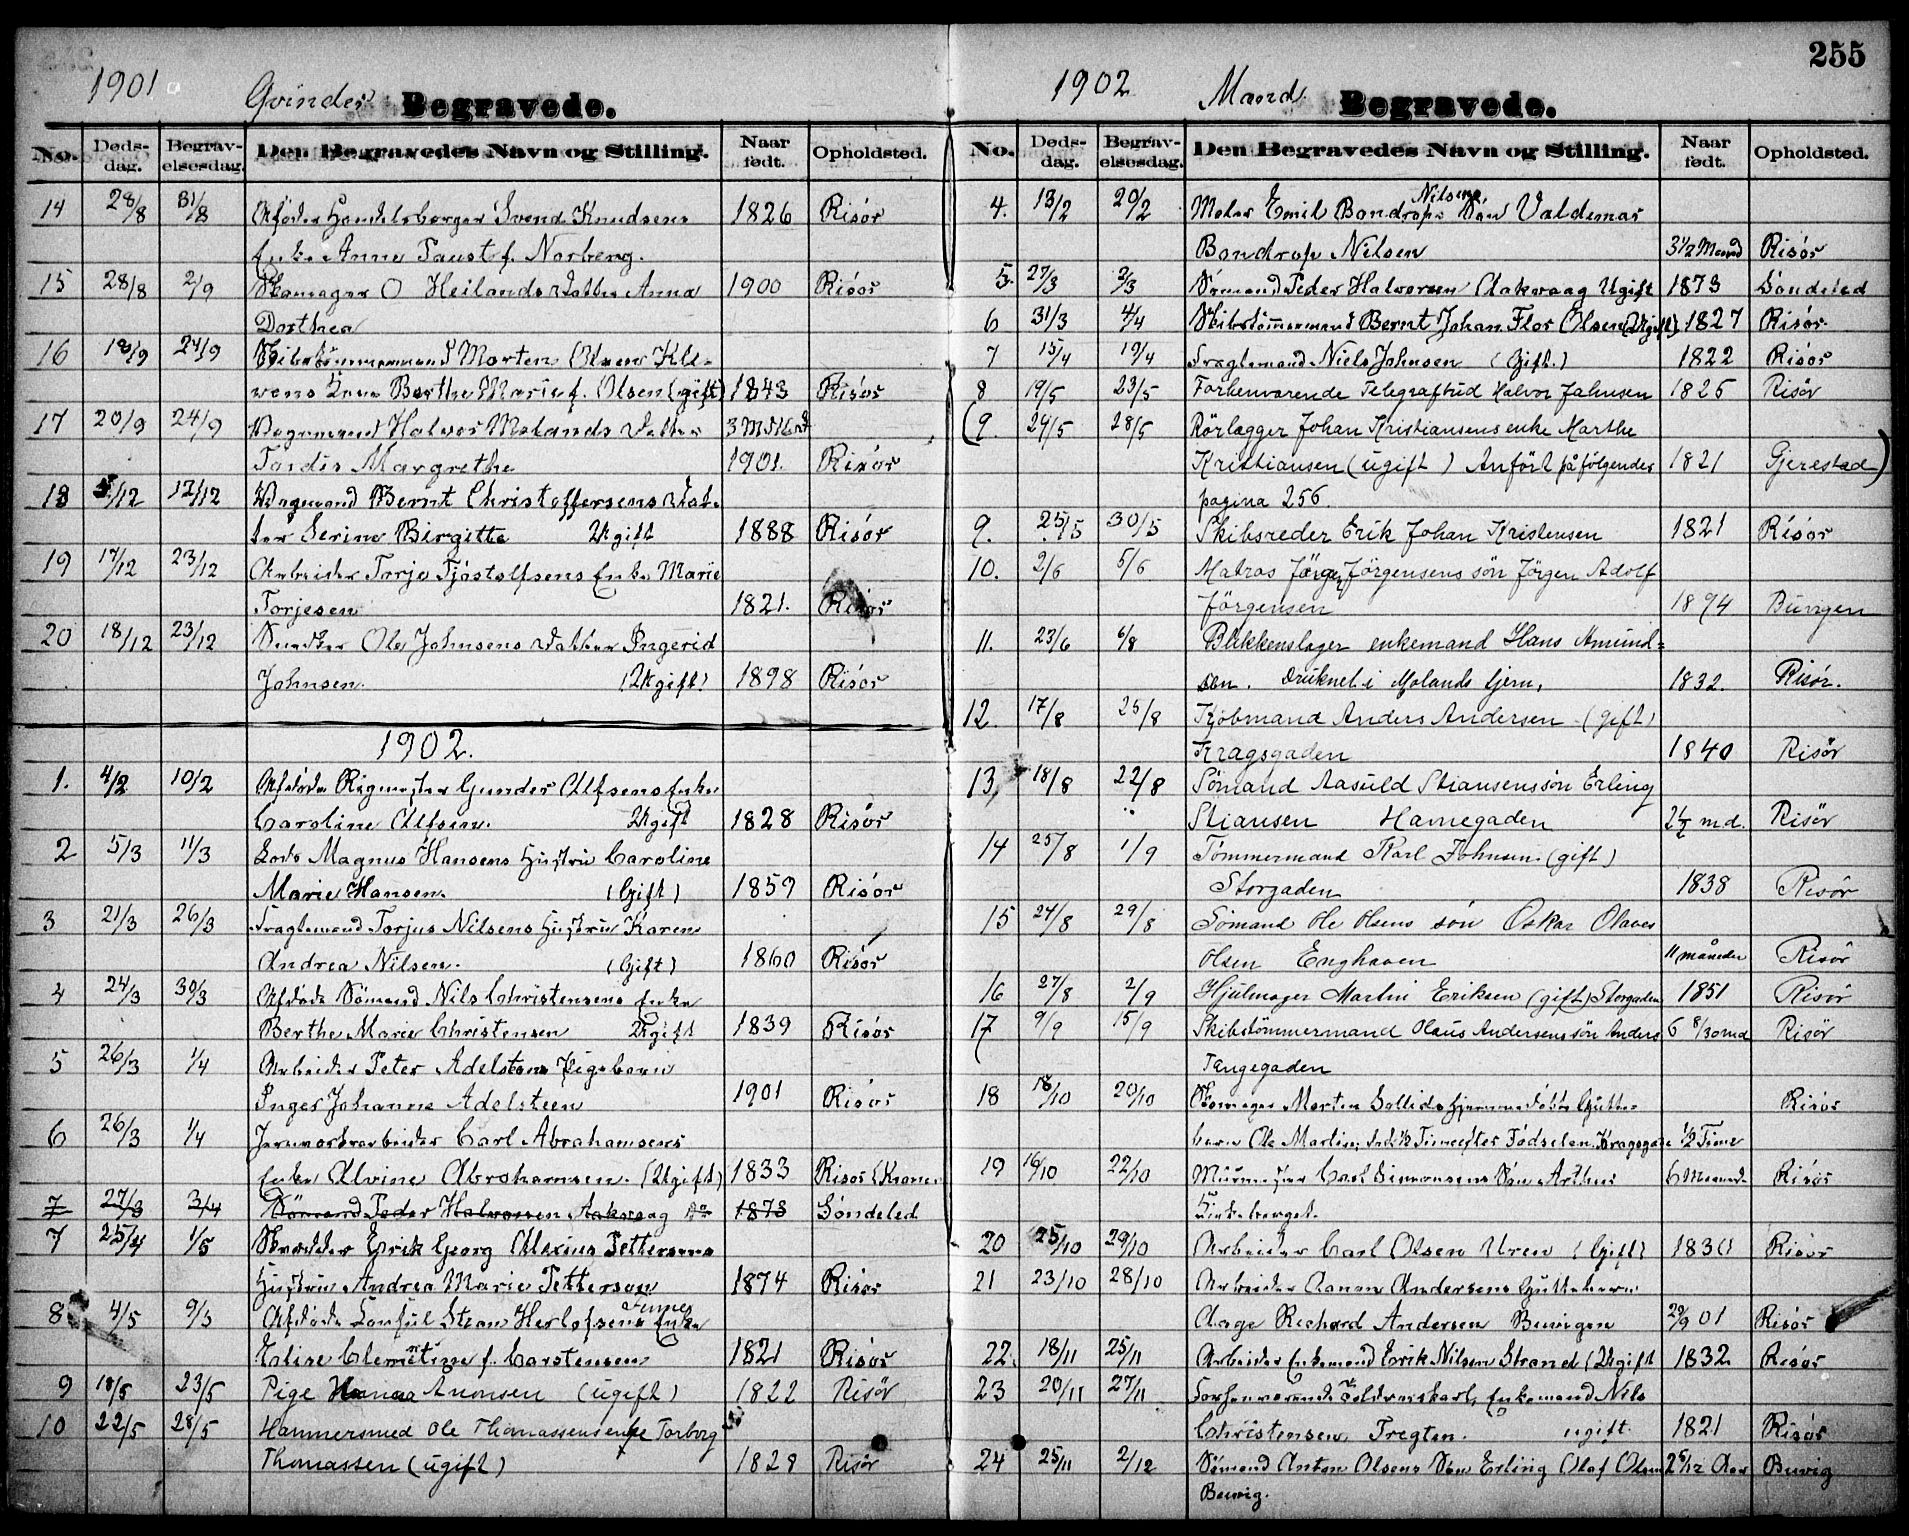 255
1901 Qvinder Begravede.
No. Døds-dag. Begrav-elsesdag. Den Begravedes Navn og Stilling. Naar født. Opholdsted.
14 28/8 31/8 Afdøde Handelsborger Svend Knudsens 1826 Risör
Enke Anne Faust f. Norberg.
15 28/8 2/9 Skomager O Heilands Datter Anna 1900 Risör
Dorthea
16 18/9 24/9 Skibstømmermand Morten Olsens Kle-
vens Kone Berthe Marie f. Olsen (gift) 1843 Risör
17 20/9 24/9 Vognmand Halvor Molands Datter 3 Md
Tordis Margrethe 1901. Risör
18 5/12 12/12 Vognmand Bernt Christoffersens Dat-
ter Serine Birgitte Ugift 1888 Risör
19 17/12 23/12 Arbeider Torje Tjöstolfsens Enke Marie
Torjesen 1821. Risör
20 18/12 23/12 Snedker Ole Johnsens Datter Ingerid
Johnsen. (Ugift) 1898 Risör
1902.
1. 4/2 10/2 Afdöde Rigmester Gunder Alfsens Enke
Caroline Alfsen. Ugift 1828 Risör
2 5/3 11/3 Lods Magnus Hansens Hustru Caroline
Marie Hansen. (Gift) 1859 Risör
3 21/3 26/3 Fragtemand Torjus Nilsens Hustru Karen
Andrea Nilsen. (Gift) 1860 Risör
4 24/3 30/3 Afdöde Sömand Nils Christensens Enke
Berthe Marie Christensen Ugift 1839 Risör
5 26/3 1/4 Arbeider Peter Adelsteens Pigebarn
Inger Johanne Adelsteen 1901 Risör
6 26/3 1/4 Jernverksarbeider Carl Abrahamsens
Enke Alvine Abrahamsen. (Ugift) 1833 Risör (Krane
7 27/3 3/4 Sömand Peder Halvorsen Aakvaag 1873 Söndeled
7 25/4 1/5 Skrædder Erik Georg Alexius Pettersens
Hustru Andrea Marie Petterson 1874 Risör
8 4/5 9/5 Afdöde Consul Steam Herlofsens Finnes Enke
Elise Clementine f. Carstensen 1821 Risör
9 18/5 23/5 Pige Hanna Anonsen (ugift) 1822 Risör
10 22/5 28/5 Hammersmed Ole Thomassens enke Torborg
Thomassen (ugift) 1828 Risör
1902 Mænd. Begravede.
No. Døds-dag. Begrav-elsesdag. Den Begravedes Navn og Stilling. Naar født. Opholdsted.
4. 13/2 20/2 Maler Emil Bondrop Nilsens Sön Valdemar
Bondrop Nilsen 3 1/2 Maaned Risör
5. 27/3 3/3 Sömand Peder Halvorsen Aakvaag Ugift 1873 Söndeled
6 31/3 4/4 Skibstömmermand Bernt Johan Flor Olsen (Ugift) 1827 Risör.
7 15/4 19/4 Fragtemand Niels Johnsen (Gift.) 1822 Risör
8 19/5 23/5 Forhenværende Telegrafbud Halvor Jahnsen 1825 Risör
(9. 24/5 28/5 Rörlægger Johan Kristiansens enke Marthe
Kristiansen (ugift) Anfört på følgende 1821 Gjerestad)
pagina 256.
9. 25/5 30/5 Skibsreder Erik Johan Kristensen 1821 Risör
10. 2/6 5/6 Matros Jörgen Jörgensens sön Jörgen Adolf
Jörgensen 1894 Buvigen
11. 23/6 6/8 Blikkenslager enkemand Hans Amund-
sen. Druknet i Molands tjern, 1832. Risör.
12. 17/8 25/8 Kjöbmand Anders Andersen (gift)
Kragsgaden 1840 Risör
13, 18/8 22/8 Sömand Aasuld Stiansens sön Erling
Stiansen Havnegaden 2 1/2 m.d. Risör
14 25/8 1/9 Tömmermand Karl Johnsen (gift)
Storgaden 1838 Risör
15 24/8 29/8 Sömand Ole Olsens sön Oskar Olaves
Olsen Enghaven 11 måneder Risör
16 27/8 2/9 Hjulmager Martin Eriksen (gift) Storgaden 1851 Risör
17 9/9 15/9 Skibstömmermand Olaus Andersens sön Anders 6 8/30 md Risör
Tangegaden
18 18/10 20/10 Skomager Morten Sollids hjemmedöbte Gutte- Risör
barn Ole Martin, död 1/2 Time efter Födselen. Kragsgade 1/2 Time
19 16/10 22/10 Murmester Carl Simonsens Sön Arthur 6 Maaned. Risör
20 25/10 29/10 Arbeider Carl Olsen Uren (Gift) 1830 Risör
21 23/10 28/10 Arbeider Aanon Andersens Guttebarn
Aage Richard Andersen Buvigen 29/9 01 Risör
22. 18/11 25/11 Arbeider Enkemand Erik Nilsen Strand (Ugift 1832 Risör
23 20/11 27/11 Forhenværende Toldvæskarl, Enkemand Nils
Christensen Tregten. ugift. 1821 Risör
24 25/11 2/12 Sömand Anton Olsens Sön Erling Olaf Olsen 2 5/12 Aar Buvig
Buvig.